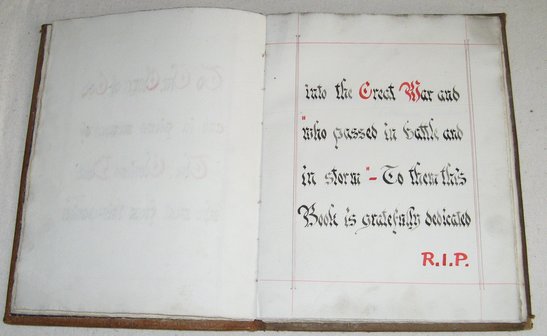 into the Great War and
"who passed in battle and
in storm" – To them this
Book is gratefully dedicated
R.I.P.